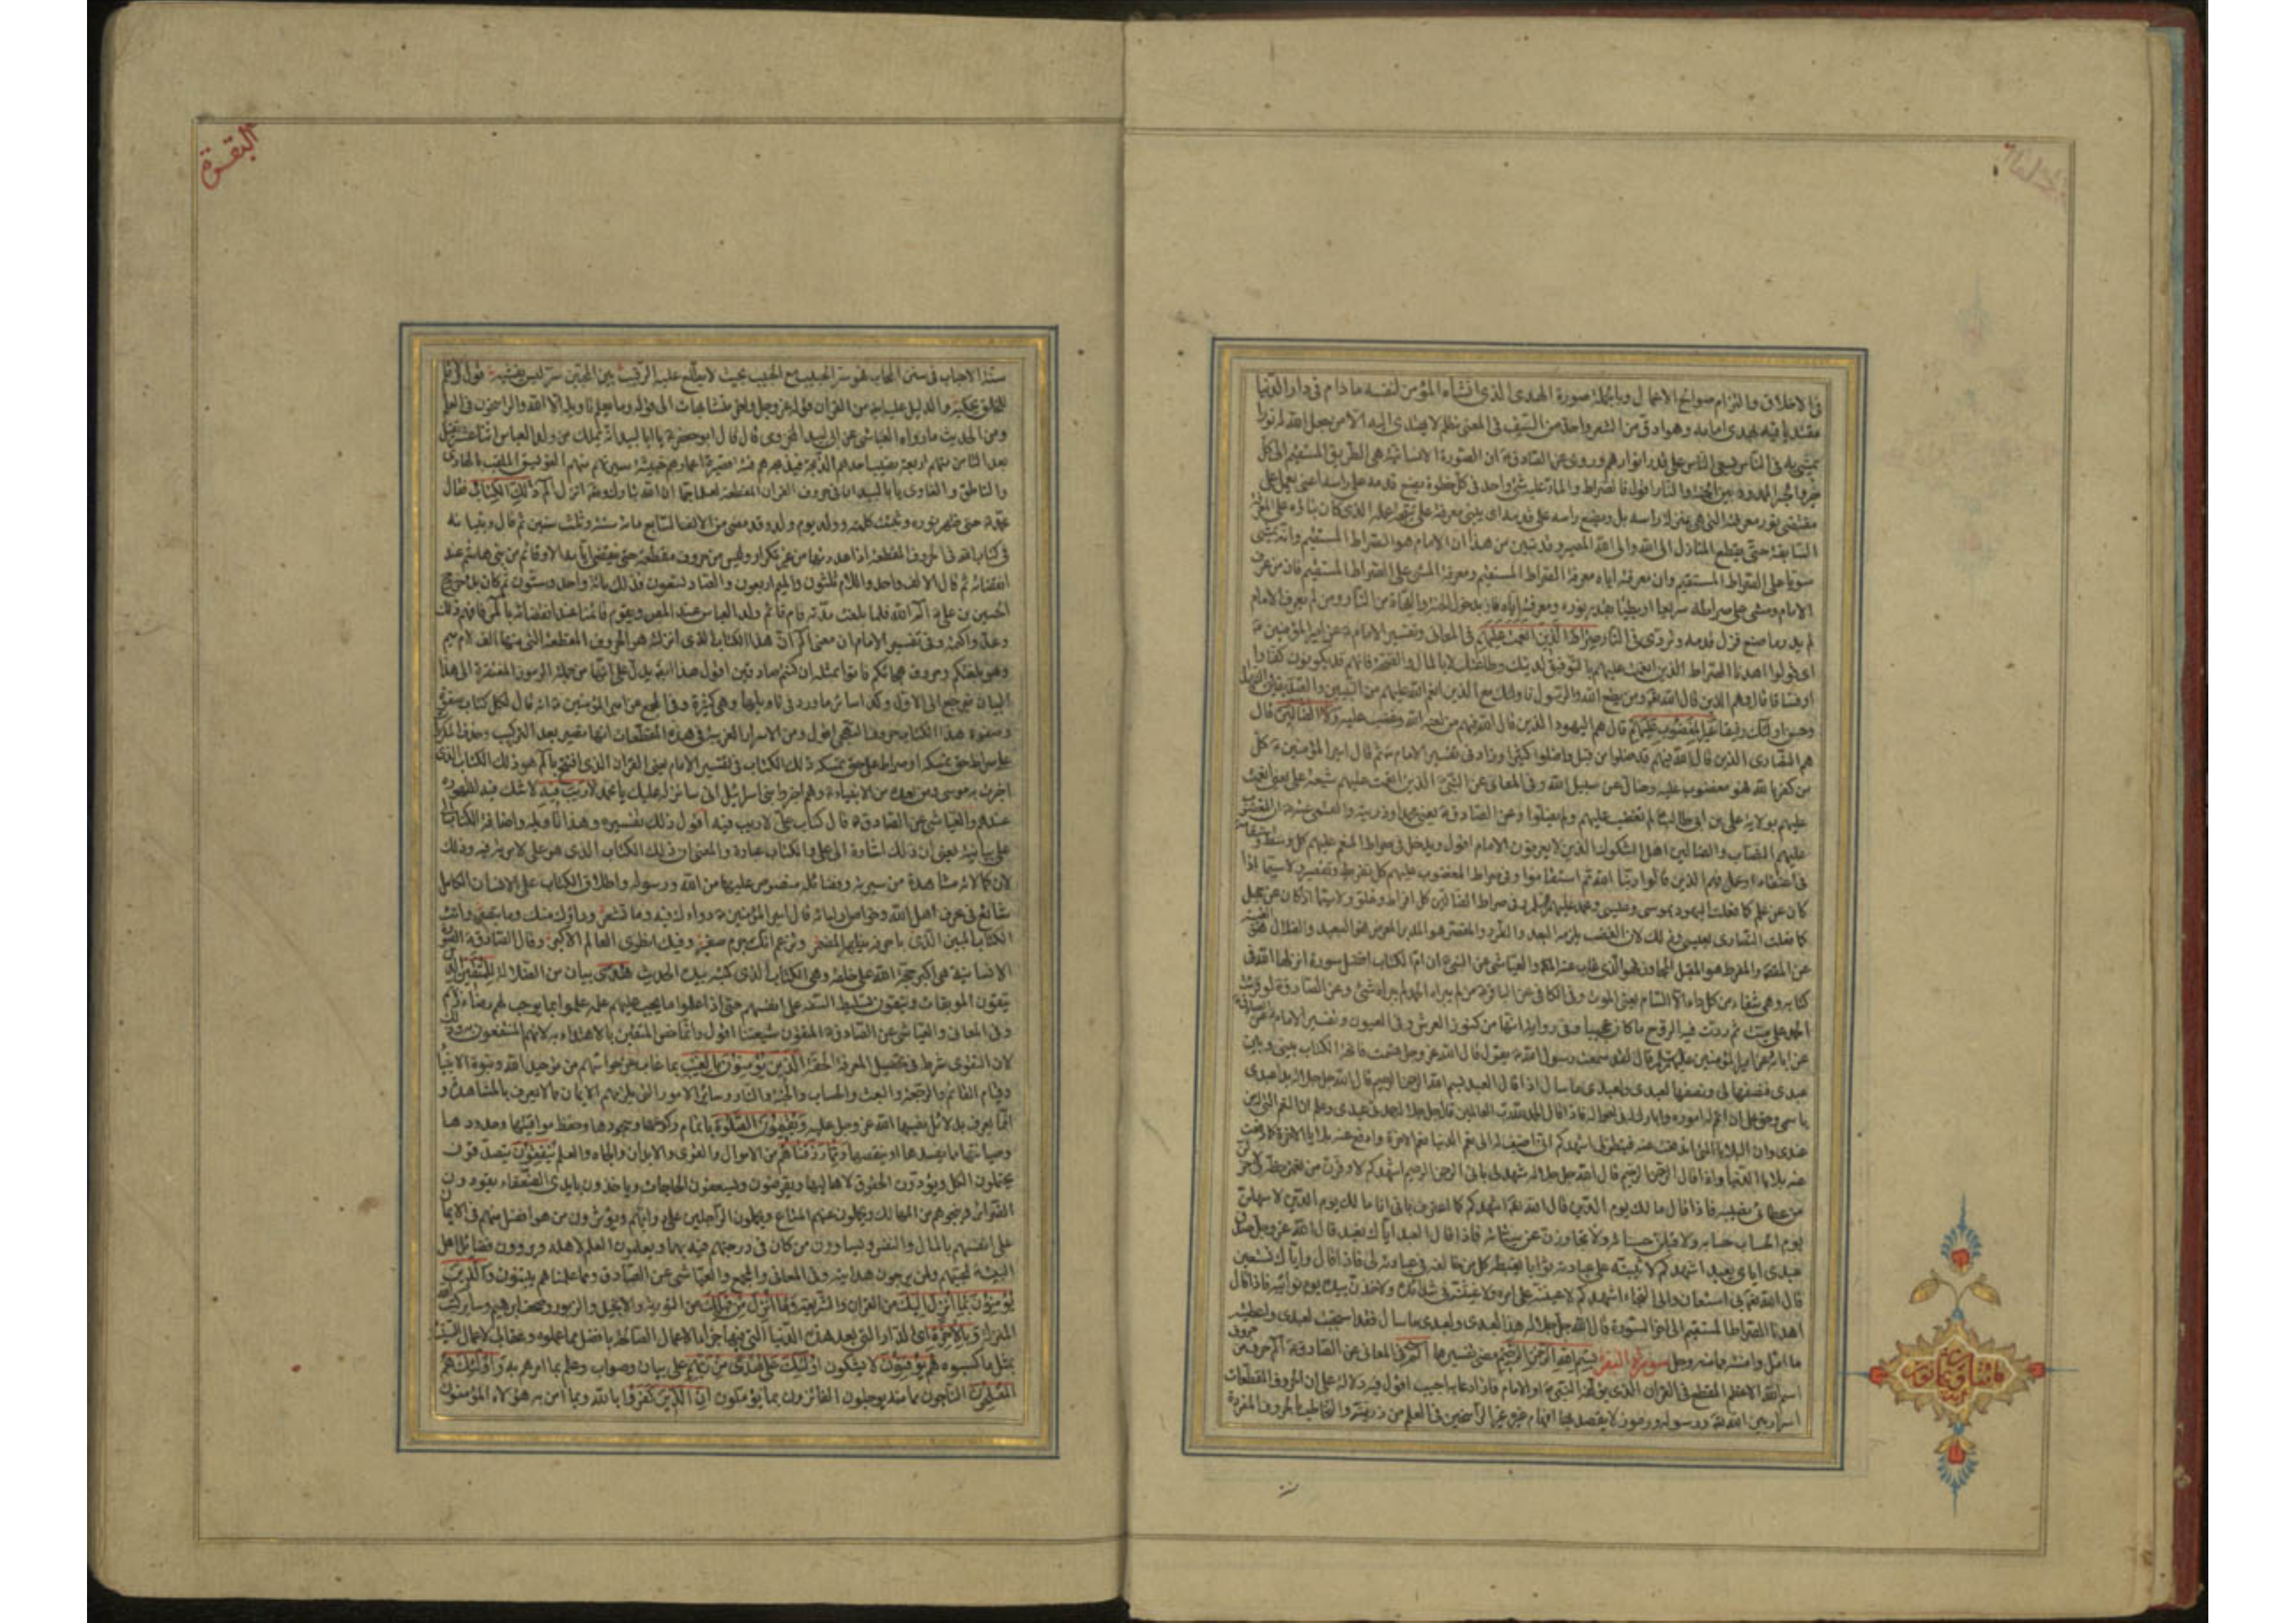 الفاتحة
في الاخلاق والتزام صوالح الاعمال وبالجملة صورة الهدى الذي انشأه المؤمن لنفسه ما دام في دار الدنيا
مقتديا فيه بهدى امامه وهو ادق من الشعر واحد من السيف في المعنى مظلم لا يهتدي اليه الا من جعل الله له نورا
يمشي به في الناس يسعى الناس على قدر انوارهم وروى عن الصادق ان الصورة الانسانية هي الطريق المستقيم الى كل
خير والجسر الممدود بين الجنة والنار اقول فالصراط والمار عليه شيء واحد في كل خطوة يضع قدمه على راسه اعني يعمل على
مقتضى نور معرفته التي هي بمنزلة راسه بل ويضع راسه على قدمه اي يبني معرفته على نتيجة عمله الذي كان بناؤه على المعرفة
السابقة حتى يقطع المنازل الى الله والى الله المصير وقد تبين من هذا ان الامام هو الصراط المستقيم وانه يمشي
سويا على الصراط المستقيم وان معرفته اياه معرفة الصراط المستقيم ومعرفة المشي على الصراط المستقيم فان من عرف
الامام ومشى على صراطه سريعا او بطيئا بقدر نوره ومعرفته اياه فاز بدخول الجنة والنجاة من النار ومن لم يعرف الامام
لم يدر ما صنع فزل قدمه وتردى في النار صراط الذين انعمت عليهم في المعاني وتفسير الامام عن امير المؤمنين
اي قولوا اهدنا الصراط الذين انعمت عليهم بالتوفيق لدينك وطاعتك لا بالمال والصحة فانهم قد يكونون كفارا
او فساقا قال وهم الذين قال الله ومن يطع الله والرسول فاولئك مع الذين انعم الله عليهم من النبيين والصديقين والشهداء
وحسن اولئك رفيقا غير المغضوب عليهم قال هم اليهود الذين قال الله فيهم من لعنه الله وغضب عليه ولا الضالين قال
هم النصارى الذين قال الله فيهم قد ضلوا من قبل واضلوا كثيرا وزاد في تفسير الامام ثم قال امير المؤمنين كل
من كفر بالله فهو مغضوب عليه وضال عن سبيل الله وفي المعاني عن النبي الذين انعمت عليهم شيعة علي يعني انعمت
عليهم بولاية علي بن ابي طالب لم تغضب عليهم ولم يضلوا وعن الصادق يعني محمدا وذريته والقمي عنه ان المغضوب
عليهم النصاب والضالين اهل الشكوك الذين لا يعرفون الامام اقول ويدخل في صراط المنعم عليهم كل وسط واستقامة
في اعتقاد او عمل فهم الذين قالوا ربنا الله ثم استقاموا وفي صراط المغضوب عليهم كل تفريط وتقصير ولا سيما اذا
كان عن علم كما فعلت اليهود بموسى وعيسى ومحمد وفي صراط الضالين كل افراط وغلو ولا سيما اذا كان عن جهل
كما فعلت النصارى بعيسى وذلك لان الغضب يلزمه البعد والطرد والمقصر هو المدبر المعرض فهو البعيد والضلال هو الغيبة
عن المقصد والمفرط هو المقبل المجاوز فهو الذي غاب عنه المطلوب والعياشي عن النبي ان ام الكتاب افضل سورة انزلها الله في
كتابه وهي شفاء من كل داء الا السام يعني الموت وفي الكافي عن الباقر من لم يبرأه الحمد لم يبرأه شيء وعن الصادق لو قرئت
الحمد على ميت ثم ردت فيه الروح ما كان عجيبا وفي رواية انها من كنوز العرش وفي العيون وتفسير الامام عن الصادق
عن ابائه عن امير المؤمنين قال لقد سمعت رسول الله يقول قال الله عز وجل قسمت فاتحة الكتاب بيني وبين
عبدي فنصفها لي ونصفها لعبدي ولعبدي ما سأل اذا قال العبد بسم الله الرحمن الرحيم قال الله جل جلاله بدأ عبدي
باسمي وحق علي ان اتمم له اموره وابارك له في احواله فاذا قال الحمد لله رب العالمين قال جل جلاله حمدني عبدي وعلم ان النعم التي له من
عندي وان البلايا التي اندفعت عنه فبتطولي اشهدكم اني اضيف له الى نعم الدنيا نعم الاخرة وادفع عنه بلايا الاخرة كما دفعت
عنه بلايا الدنيا واذا قال الرحمن الرحيم قال الله جل جلاله شهد لي باني الرحمن الرحيم اشهدكم لاوفرن من نعمتي حظه ولاجزلن
من عطائي نصيبه فاذا قال مالك يوم الدين قال الله اشهدكم كما اعترف باني انا مالك يوم الدين لاسهلن
يوم الحساب حسابه ولاقبلن حسناته ولاتجاوزن عن سيئاته فاذا قال العبد اياك نعبد قال الله عز وجل صدق
عبدي اياي يعبد اشهدكم لاثيبنه على عبادته ثوابا يغبطه كل من خالفه في عبادته لي فاذا قال واياك نستعين
قال الله بي استعان والي التجأ اشهدكم لاعيننه على امره ولاغيثنه في شدائده ولاخذن بيده يوم نوائبه فاذا قال
اهدنا الصراط المستقيم الى اخر السورة قال الله جل جلاله هذا لعبدي ولعبدي ما سأل فقد استجبت لعبدي واعطيته
ما امل وامنته مما منه وجل سورة البقرة بسم الله الرحمن الرحيم مضى تفسيرها الم في المعاني عن الصادق الم حرف من حروف
اسم الله الاعظم المقطع في القران الذي يؤلفه النبي او الامام فاذا دعا به اجيب اقول فيه دلالة على ان الحروف المقطعات
اسرار بين الله ورسوله ورموز لم يقصد بها افهام غيره وغير الراسخين في العلم من ذريته والتخاطب بالحروف المفردة
البقرة
سنة الاحباب في سنن المحاب فهو سر الحبيب مع الحبيب بحيث لا يطلع عليه الرقيب بين المحبين سر ليس يفشيه قول ولا قلم
للخلق يحكيه والدليل عليه ايضا من القران قوله عز وجل واخر متشابهات الى قوله وما يعلم تاويله الا الله والراسخون في العلم
ومن الحديث ما رواه العياشي عن ابي لبيد المخزومي قال قال ابو جعفر يا ابا لبيد انه يملك من ولد العباس اثنا عشر يقتل
بعد الثامن منهم اربعة تصيب احدهم الذبحة فيذبحه هم فئة قصيرة اعمارهم خبيثة سيرتهم منهم الفويسق الملقب بالهادي
والناطق والغاوي يا ابا لبيد ان في حروف القران المقطعة لعلما جما ان الله تبارك وتعالى انزل الم ذلك الكتاب فقام
محمد حتى ظهر نوره وثبتت كلمته وولد يوم ولد وقد مضى من الالف السابع مائة سنة وثلث سنين ثم قال وتبيانه
في كتاب الله في الحروف المقطعة اذا عددتها من غير تكرار وليس من حروف مقطعة حرف ينقضي ايامه الا وقائم من بني هاشم عند
انقضائه ثم قال الالف واحد واللام ثلثون والميم اربعون والصاد تسعون فذلك مائة واحد وستون ثم كان بدو خروج
الحسين بن علي الم الله فلما بلغت مدته قام قائم ولد العباس عند المص ويقوم قائمنا عند انقضائها بالر فافهم ذلك
وعه واكتمه وفي تفسير الامام ان معنى الم ان هذا الكتاب الذي انزلته هو الحروف المقطعة التي منها الف لام ميم
وهو بلغتكم وحروف هجائكم فاتوا بمثله ان كنتم صادقين اقول هذا ايضا يدل على انها من جملة الرموز المفتقرة الى هذا
البيان فيرجع الى الاول وكذا سائر ما ورد في تاويلها وهي كثيرة وفي المجمع عن امير المؤمنين انه قال لكل كتاب صفوة
وصفوة هذا الكتاب حروف التهجي اقول ومن الاسرار الغريبة في هذه المقطعات انها تصير بعد التركيب وحذف المكررات
علي صراط حق نمسكه او صراط علي حق نمسكه ذلك الكتاب في تفسير الامام يعني القران الذي افتتح بالم هو ذلك الكتاب الذي
اخبرت به موسى ومن بعده من الانبياء وهم اخبروا بني اسرائيل اني سانزله عليك يا محمد لا ريب فيه لا شك فيه لظهوره
عندهم والعياشي عن الصادق قال كتاب علي لا ريب فيه اقول ذلك تفسيره وهذا تاويله واضافة الكتاب الى
علي بيانية يعني ان ذلك اشارة الى علي والكتاب عبارة والمعنى ان ذلك الكتاب الذي هو علي لا مرية فيه وذلك
لان كمالاته مشاهدة من سيرته وفضائله منصوص عليها من الله ورسوله واطلاق الكتاب على الانسان الكامل
شائع في عرف اهل الله وخواص اوليائه قال امير المؤمنين دواءك فيك وما تشعر وداؤك منك وما تبصر وانت
الكتاب المبين الذي باحرفه يظهر المضمر وتزعم انك جرم صغير وفيك انطوى العالم الاكبر وقال الصادق الصورة
الانسانية هي اكبر حجة الله على خلقه وهي الكتاب الذي كتبه بيده الحديث هدى بيان من الضلالة للمتقين الذين
يتقون الموبقات ويتقون تسليط السفه على انفسهم حتى اذا علموا ما يجب عليهم علمه عملوا بما يوجب لهم رضاء ربهم
وفي المعاني والعياشي عن الصادق المتقون شيعتنا اقول وانما خص المتقين بالاهتداء به لانهم المنتفعون به وذلك
لان التقوى شرط في تحصيل المعرفة الحقة الذين يؤمنون بالغيب بما غاب عن حواسهم من توحيد الله ونبوة الانبياء
وقيام القائم والرجعة والبعث والحساب والجنة والنار وسائر الامور التي يلزمهم الايمان بها مما لا يعرف بالمشاهدة و
انما يعرف بدلائل نصبها الله عز وجل عليه ويقيمون الصلوة باتمام ركوعها وسجودها وحفظ مواقيتها وحدودها
وصيانتها مما يفسدها او ينقصها ومما رزقناهم من الاموال والقوى والابدان والجاه والعلم ينفقون يتصدقون
يحتملون الكل ويؤدون الحقوق لاهاليها ويقرضون ويسعفون الحاجات وياخذون بايدي الضعفاء يقودون
الضرائر وينجوهم من المهالك ويحملون عنهم المتاع ويحملون الراجلين على دوابهم ويؤثرون من هو افضل منهم في الايمان
على انفسهم بالمال والنفس ويساوون من كان في درجتهم فيه بهما ويعلمون العلم لاهله ويروون فضائل اهل
البيت لمحبيهم ولمن يرجون هدايته وفي المعاني والمجمع والعياشي عن الصادق ومما علمناهم يبثون والذين
يؤمنون بما انزل اليك من القران والشريعة وما انزل من قبلك من التورية والانجيل والزبور وصحف ابراهيم وسائر كتب الله
المنزلة وبالاخرة اي الدار التي بعد هذه الدنيا التي فيها جزاء الاعمال الصالحة بافضل مما عملوه وعقاب الاعمال السيئة
بمثل ما كسبوه هم يوقنون لا يشكون اولئك على هدى من ربهم على بيان وصواب وعلم بما امرهم به واولئك هم
المفلحون الناجون مما منه يوجلون الفائزون بما يؤملون ان الذين كفروا بالله وبما امن به هؤلاء المؤمنون